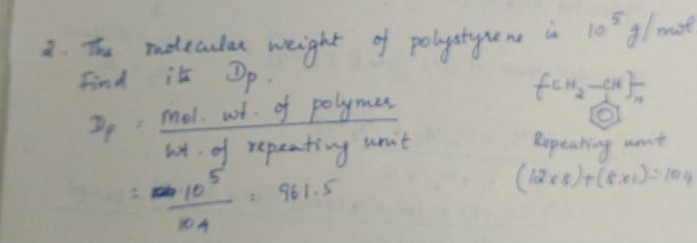 2. The molecular weight of polystyrene is 10^5 g/mol
Find its Dp.
Dp = Mol. wt. of polymer / wt. of repeating unit
= 10^5 / 104 = 961.5
[CH2-CH]n
Repeating unit
(12x8)+(8x1)=104